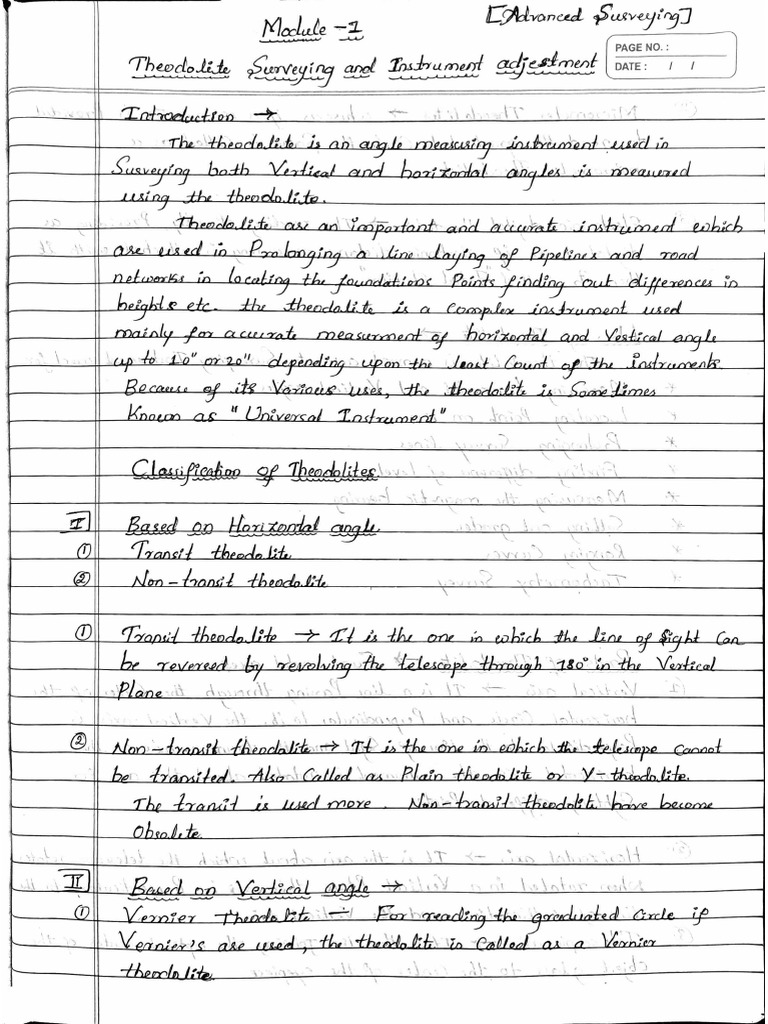 [Advanced Surveying]
Module -1
PAGE NO. :
DATE : / /
Theodolite Surveying and Instrument adjestment
Introduction →
The theodolite is an angle measuring instrument used in
Surveying both Vertical and horizontal angles is measured
using the theodolite.
Theodolite are an important and accurate instrument which
are used in Prolonging a line laying of Pipelines and road
networks in locating the foundations Points finding out differences in
heights etc. the theodolite is a complex instrument used
mainly for accurate measurment of horizontal and Vertical angle
up to 10" or 20" depending upon the least Count of the instruments.
Because of its Various uses, the theodoilite is Sometimes
Known as "Universal Instrument"
Classification of Theodolites
I Based on Horizontal angle
① Transit theodolite
② Non-transit theodolite
① Transit theodolite → It is the one in which the line of Sight Can
be revereed by revolving the telescope through 180° in the Vertical
Plane
② Non-transit theodalite → It is the one in which the telescope cannot
be transited. Also Called as Plain theodolite or Y-theodolite.
The transit is used more. Non-transit theodolite have become
Obsolete.
II Based on Vertical angle →
① Vernier Theodolite — For reading the graduated Circle if
Vernier's are used, the theodolite is Called as a Vernier
theodolite.